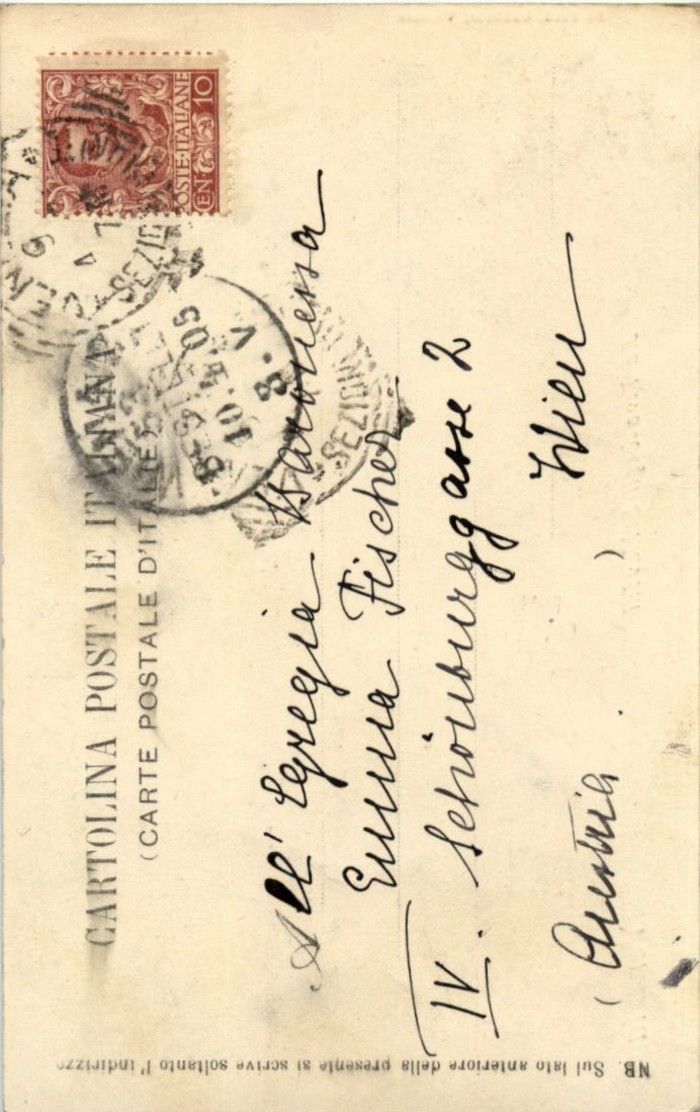 CARTOLINA POSTALE ITALIANA
(CARTE POSTALE D'ITALIE)
POSTE·ITALIANE
CEN 10
SEZION
10.4.05
8·V
All' Egregia Baronessa
Emma Fischer
IV. Schönburggasse 2
Wien
(Austria)
NB. Sul lato anteriore della presente si scrive soltanto l'indirizzo